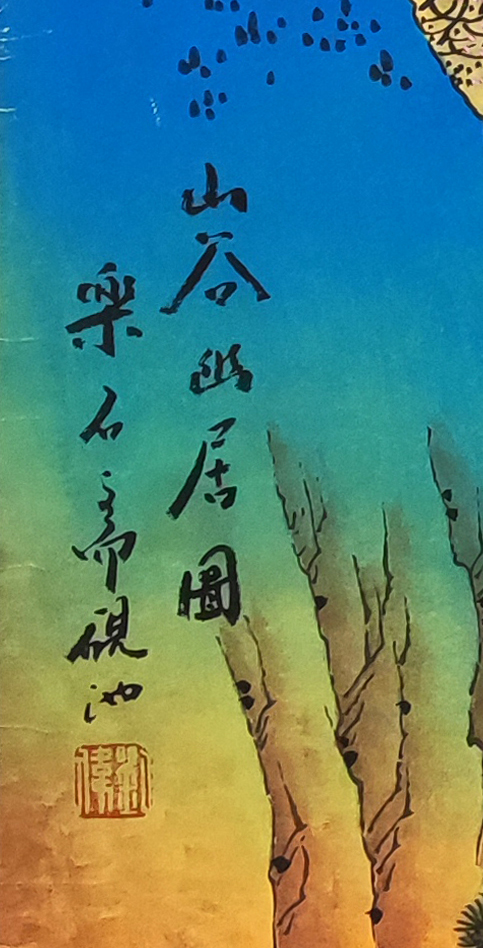 山谷幽居圖
樂石斋硯池